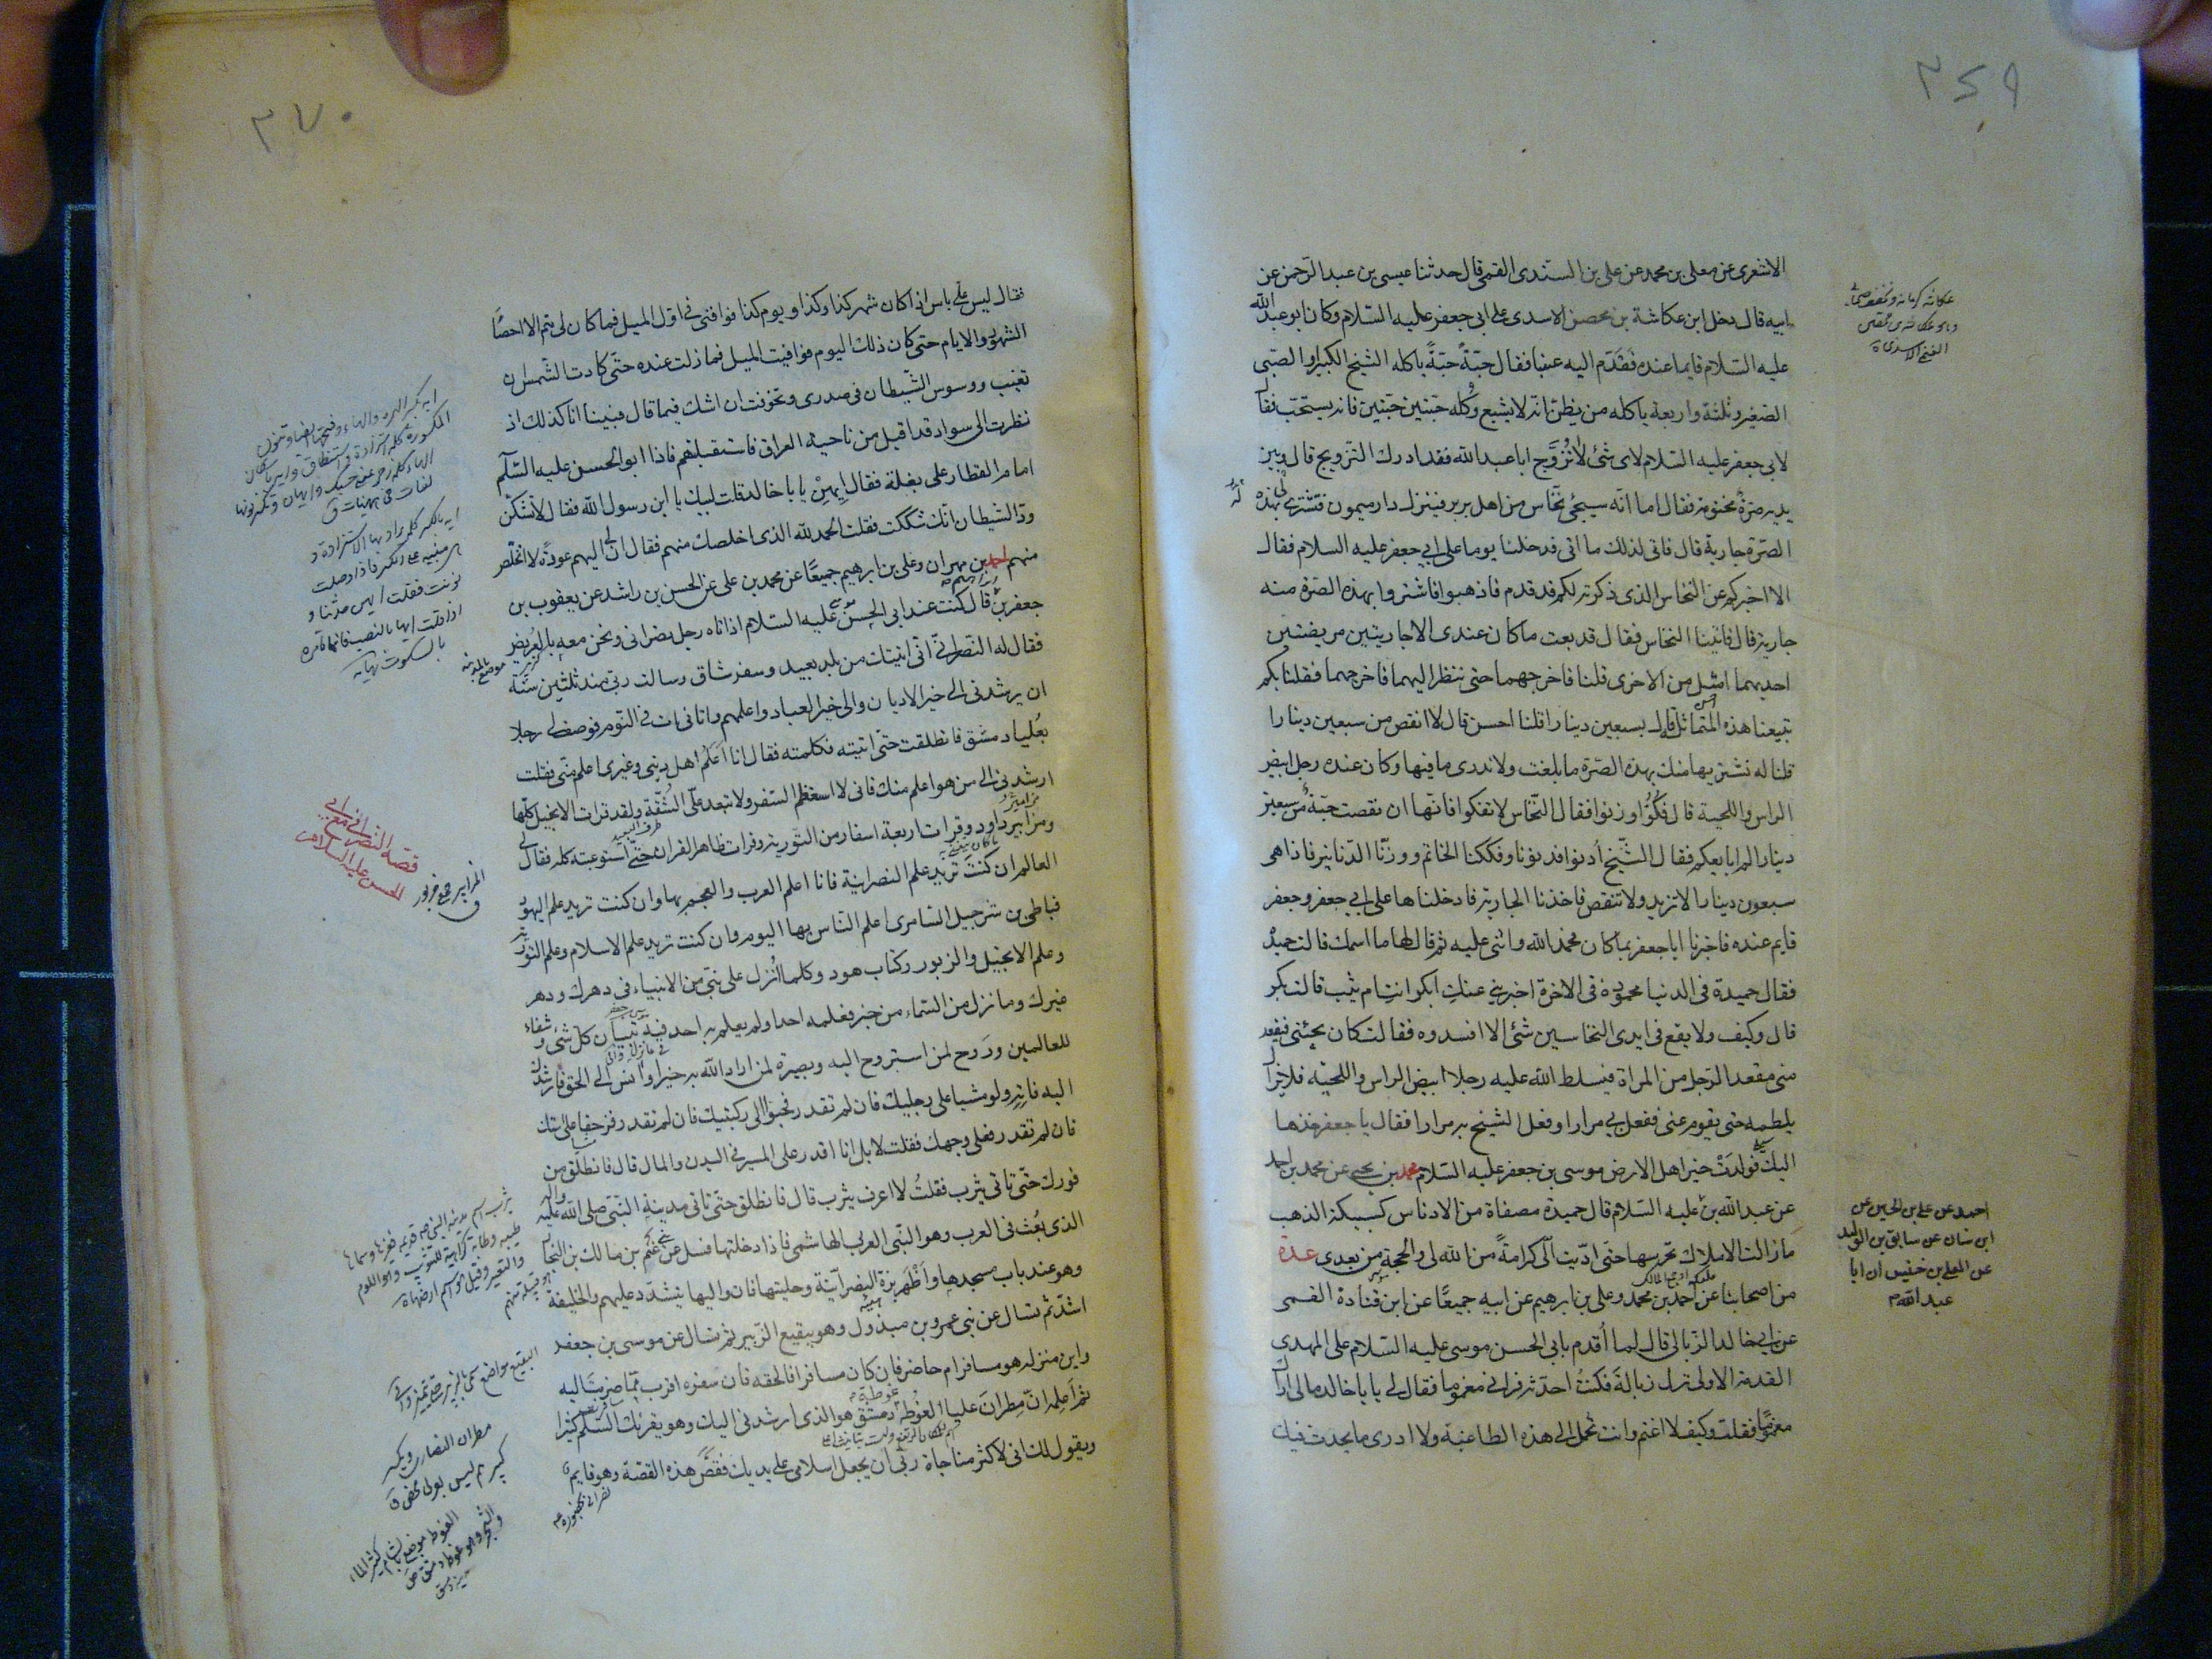 ٣٤٩
الاشعرى عن معلى بن محمد عن على بن السندى القمى قال حدثنا عيسى بن عبد الرحمن عن
ابيه قال دخل ابن عكاشة بن محصن الاسدى على ابى جعفر عليه السلام وكان ابو عبد الله
عليه السلام قايما عنده فقدم اليه عنبا فقال حبّةً حبّةً ياكله الشيخ الكبير او الصبى
الصغير وثلثة واربعة ياكله من يظن انه لا يشبع وكُله حبّتين حبّتين فانه يستحب فقال
لابى جعفر عليه السلام لاى شئ لا تُزَوِّج ابا عبد الله فقد ادرك التزويج قال وبين
يديه صرّة مختومة فقال اما انّه سيجئ نخّاس من اهل بربر فينزل دار ميمون فنشترى له بهذه
الصرّة جارية قال فاتى لذلك ما اتى فدخلنا يوما على ابي جعفر عليه السلام فقال
الا اخبركم عن النخاس الذى ذكرته لكم قد قدم فاذهبوا فاشتروا بهذه الصرّة منه
جارية قال فاتينا النخاس فقال قد بعت ما كان عندى الا جاريتين مريضتين
احديهما امثل من الاخرى قلنا فاخرجهما حتى ننظر اليهما فاخرجهما فقلنا بكم
تبيعنا هذه المتماثلة قال بسبعين دينارا قلنا احسن قال لا انقص من سبعين دينارا
قلنا له نشتريها منك بهذه الصرّة ما بلغت ولا ندرى ما فيها وكان عنده رجل ابيض
الراس واللحية قال فكّوا وزنوا فقال النخّاس لا تفكوا فانّها ان نقصت حبّة من سبعين
دينارا لم ابايعكم فقال الشّيخ ادنوا فدنونا وفككنا الخاتم ووزنّا الدّنانير فاذا هى
سبعون دينارا لا تزيد ولا تنقص فاخذنا الجارية فادخلناها على ابي جعفر وجعفر
قايم عنده فاخبرنا ابا جعفر بما كان فحمد الله واثنى عليه ثم قال لها ما اسمك قالت حميدة
فقال حميدة فى الدنيا محمودة فى الاخرة اخبرينى عنك ابكر انت ام ثيّب قالت بكر
قال وكيف ولا يقع فى ايدى النخاسين شئ الا افسدوه فقالت كان يجيئنى فيقعد
منى مقعد الرجل من المراة فيسلط الله عليه رجلا ابيض الراس واللحية فلا يزال
يلطمه حتى يقوم عنى ففعل بى مرارا وفعل الشيخ به مرارا فقال يا جعفر خذها
اليك فولدت خير اهل الارض موسى بن جعفر عليه السلام محمد بن يحيى عن محمد بن احمد
عن عبد الله بن عليه السلام قال حميدة مصفاة من الادناس كسبيكة الذهب
ما زالت الاملاك تحرسها حتى ادّيت الىّ كرامةً من الله لى والحجة من بعدى عدة
من اصحابنا عن احمد بن محمد وعلى بن ابرهيم عن ابيه جميعًا عن ابن قتادة القمى
عن ابي خالد الزبالى قال لما اُقدم بابى الحسن موسى عليه السلام على المهدى
القدمة الاولى نزل زبالة فكنتُ احدّثه فرانى مغموما فقال لى يا با خالد مالى اراك
مغمومًا فقلت وكيف لا اغتم وانت تحمل الى هذه الطاغية ولا ادرى ما يحدث فيك
احمد عن على بن الحسين عن
ابن سنان عن سابق بن الوليد
عن المعلى بن خنيس ان ابا
عبد الله م
٣٧٠
فقال ليس علىّ باس اذا كان شهر كذا وكذا ويوم كذا فوافنى فى اول الميل فما كان لى هم الا احصاء
الشهور والايام حتى كان ذلك اليوم فوافيت الميل فما زلت عنده حتى كادت الشمس ان
تغيب ووسوس الشيطان فى صدرى وتخوفت ان اشك فيما قال فبينا انا كذلك اذ
نظرت الى سواد قد اقبل من ناحية العراق فاستقبلتهم فاذا ابو الحسن عليه السّلم
امام القطار على بغلة فقال ايهٍ يا با خالد قلت لبيك يا ابن رسول الله فقال لا تشكنّ
ودّ الشيطان انّك شككت فقلت الحمد لله الذى اخلصك منهم فقال ان لى اليهم عودةً لا اتخلّص
منهم احمد بن مهران وعلى بن ابرهيم جميعًا عن محمد بن على عن الحسن بن راشد عن يعقوب بن
جعفر بن قال كنت عند ابى الحسن موسى عليه السلام اذ اتاه رجل نصرانى ونحن معه بالعُريض
فقال له النّصرانى انّى اتيتك من بلد بعيد وسفر شاق وسالت ربى منذ ثلثين سنة
ان يرشدنى الى خير الاديان والى خير العباد واعلمهم واتانى ات فى النوم فوصف لى رجلا
بعُليا دمشق فانطلقت حتى اتيته فكلمته فقال انا اعلم اهل دينى وغيرى اعلم منّى فقلت
ارشدنى الى من هو اعلم منك فانى لا استعظم السّفر ولا تبعد علىّ الشُقّة ولقد قرات الانجيل كلّها
ومزامير داود وقرات اربعة اسفار من التّورية وقرات ظاهر القران حتّى استوعبته كله فقال لى
العالم ان كنت تريد علم النصرانية فانا اعلم العرب والعجم بها وان كنت تريد علم اليهود
فباطى بن شرجيل السامرى اعلم النّاس بها اليوم وان كنت تريد علم الاسلام وعلم التورية
وعلم الانجيل والزبور وكتاب هود وكلما اُنزل على نبىّ من الانبياء فى دهرك ودهر
غيرك وما نزل من السّماء من خبر فعلمه احد او لم يعلم به احد فيه تبيان كل شئ وشفاء
للعالمين ورَوح لمن استروح اليه وبصيرة لمن اراد الله به خيرا وانس الى الحق فارشدك
اليه فاته ولو مشيا على رجليك فان لم تقدر فحبوًا على ركبتيك فان لم تقدر فزحفا على استك
فان لم تقدر فعلى وجهك فقلت لا بل انا اقدر على المسير فى البدن والمال قال فانطلق من
فورك حتّى تاتى يثرب فقلتُ لا اعرف يثرب قال فانطلق حتّى تاتى مدينة النّبى صلى الله عليه واله
الذى بُعث فى العرب وهو النّبى العربى الهاشمى فاذا دخلتها فسل عن بنى غنم بن مالك بن النجار
وهو عند باب مسجدها واَظهر بزة النصرانية وحليتها فان واليها يتشدّد عليهم والخليفة
اشدّ ثم تسال عن بنى عمرو بن مبذول وهو ببقيع الزّبير ثم تسال عن موسى بن جعفر
واين منزله هو مسافر ام حاضر فان كان مسافرا فالحقه فان سفره اقرب ممّا ضربت اليه
ثم اعلمه انّ مطران عليا الغوطة دمشق هو الذى ارشدنى اليك وهو يقرئك السّلم كثيرا
ويقول لك انى لاكثر مناجاة ربّى ان يجعل اسلامى على يديك فقصّ هذه القصّة وهو قايم
قصّة النصرانى مع ابى
الحسن عليه السلام
المزامير جمع مزمور
موضع بالمدينة
مطران النصارى ويكسر